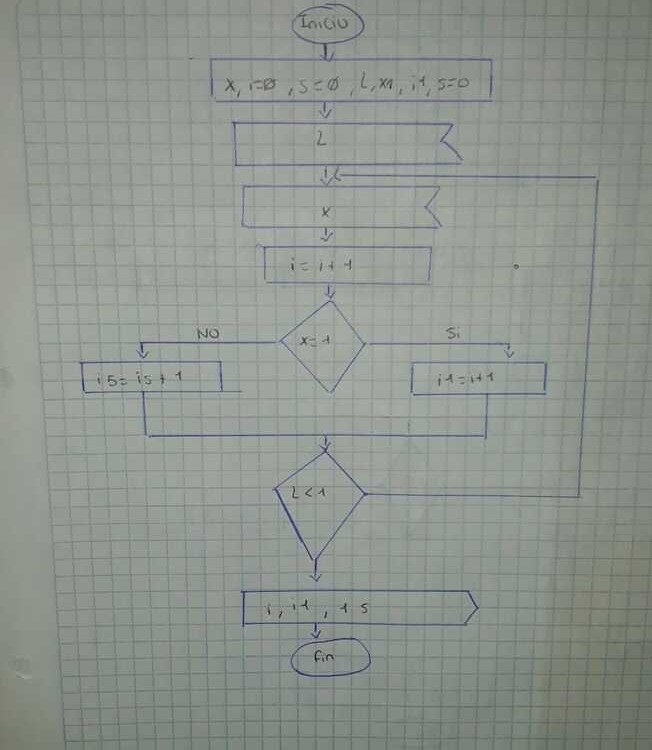 Inicio
x, i=0, s=0, L, x1, i1, s=0
L
x
i=i+1
x=1
NO
Si
i5=i5+1
i1=i+1
L<1
i, i1, 15
fin